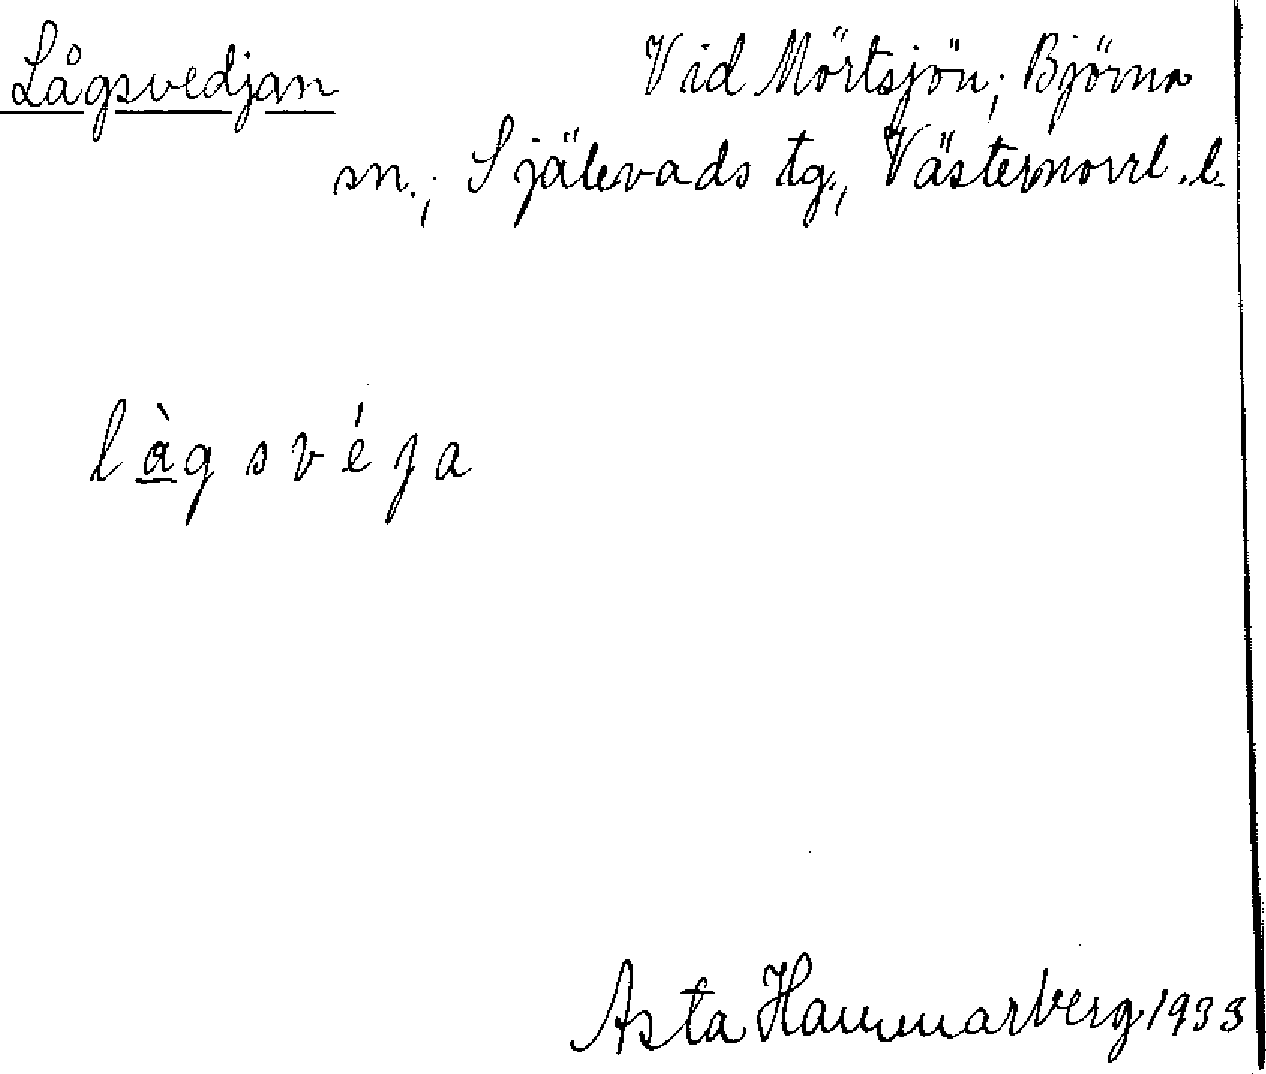 Lågsvedjan Vid Mörtsjön; Björna
sn.; Själevads tg., Västernorrl. l.
l à g s v é j a
Asta Hammarberg 1933